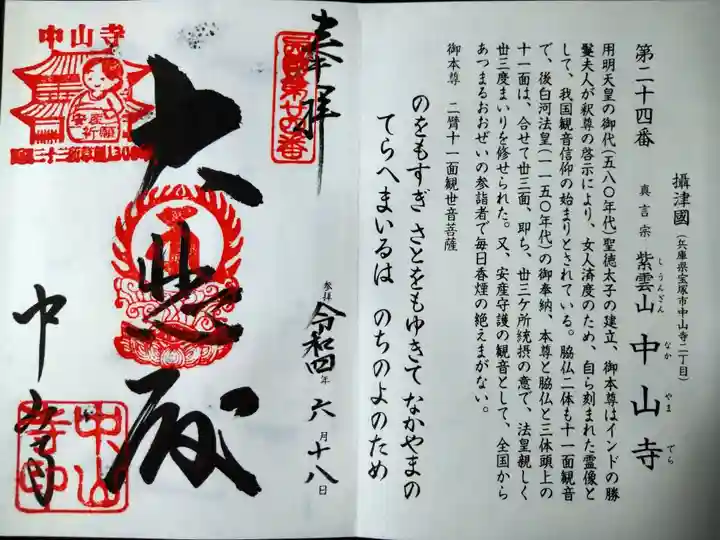 攝津國(兵庫県宝塚市中山寺二丁目)
第二十四番 真言宗 紫雲山 中山寺
しうんざん なかやまでら
用明天皇の御代(五八〇年代)聖徳太子の建立、御本尊はインドの勝
鬘夫人が釈尊の啓示により、女人済度のため、自ら刻まれた霊像と
して、我国観音信仰の始まりとされている。脇仏二体も十一面観音
で、後白河法皇(一一五〇年代)の御奉納、本尊と脇仏と三体頭上の
十一面は、合せて丗三面、即ち、丗三ケ所統摂の意で、法皇親しく
丗三度まいりを修せられた。又、安産守護の観音として、全国から
あつまるおおぜいの参詣者で毎日香煙の絶えまがない。
御本尊 二臂十一面観世音菩薩
のをもすぎ さとをもゆきて なかやまの
てらへまいるは のちのよのため
奉拝
参拝 令和四年 六月十八日
大悲殿
中山寺
中山寺
安産祈願
中山寺印